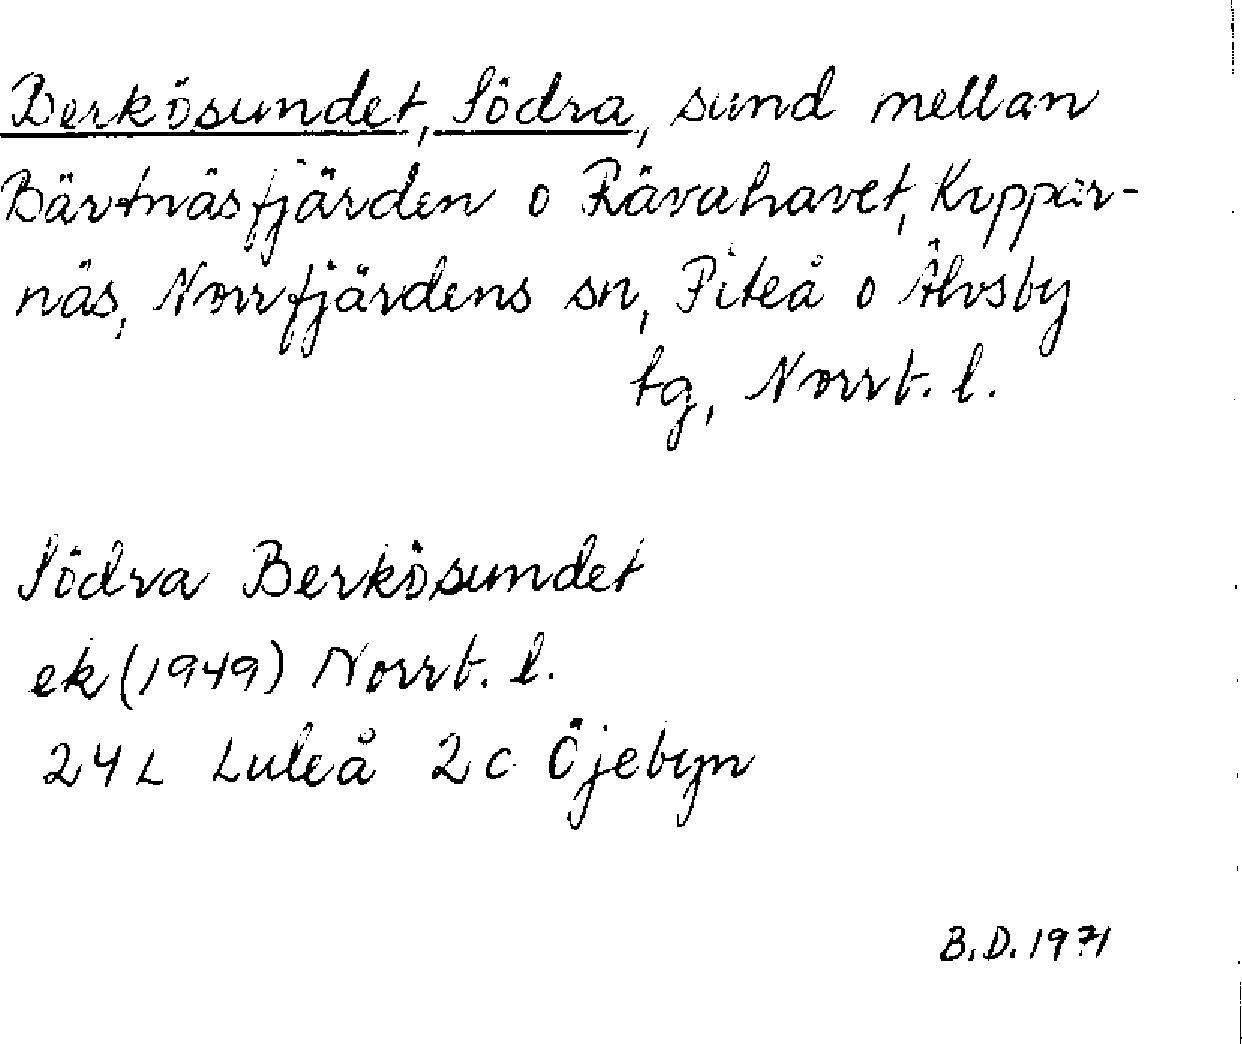 Berkösundet, Södra, sund mellan
Bärtnäsfjärden o Rävahavet, Koppar-
näs, Norrfjärdens sn, Piteå o Älvsby
tg, Norrb. l.
Södra Berkösundet
ek (1949) Norrb. l.
24 L Luleå 2c Öjebyn
B.D. 1971